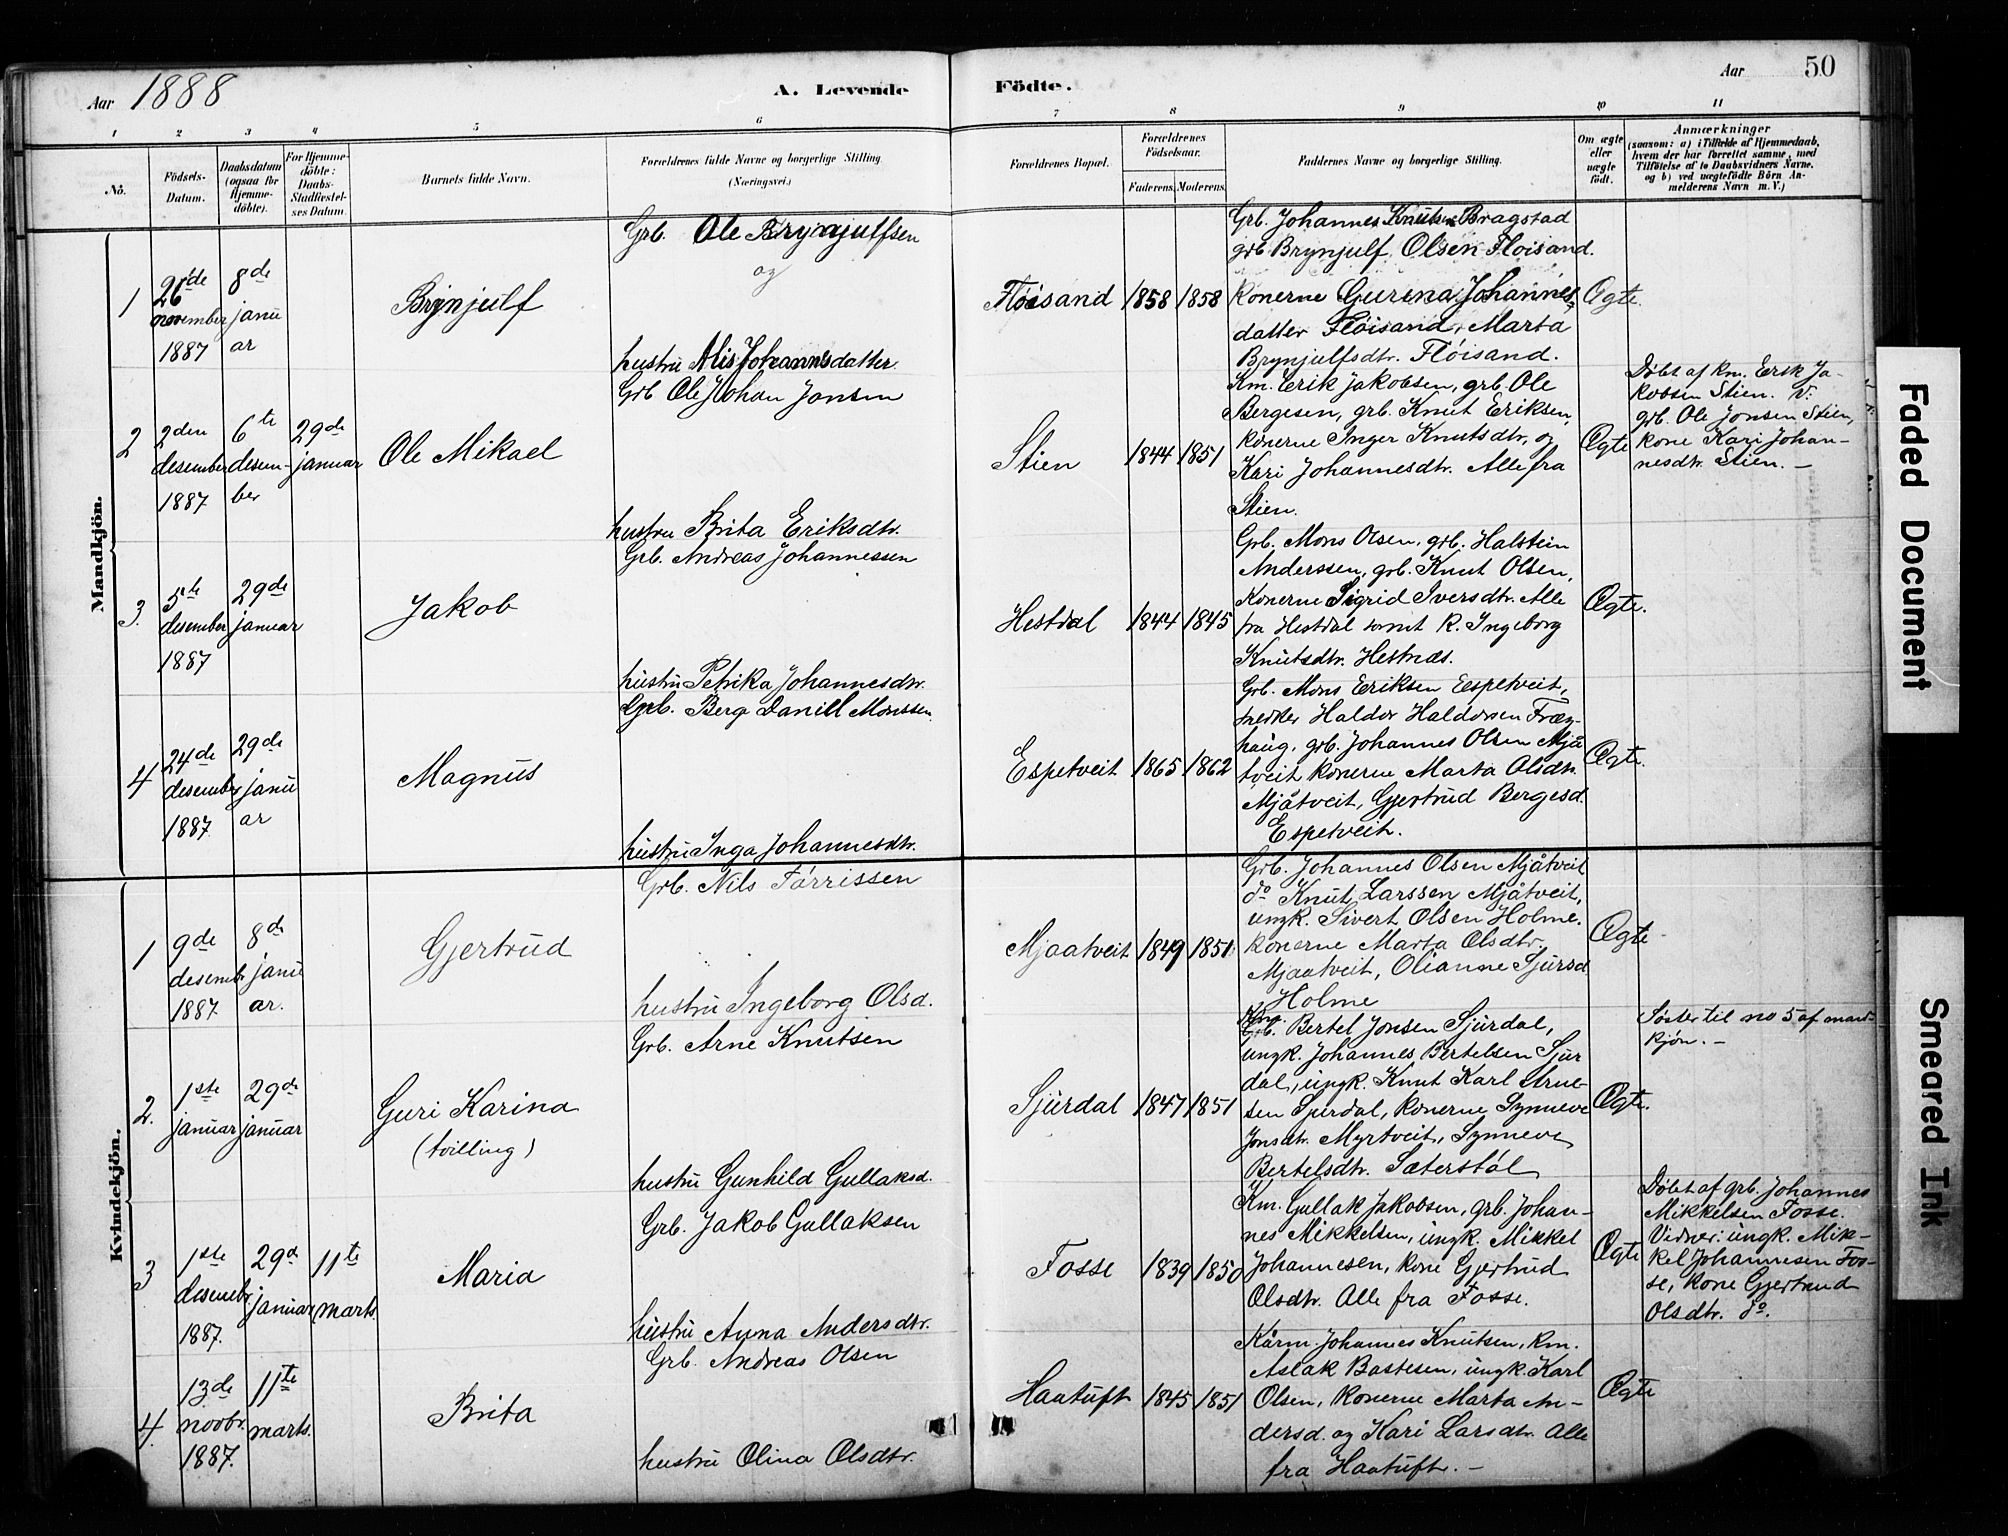 Aar 1888
A. Levende Födte.
Aar 50
1 2 3 4 5 6 7 8 9 10 11
No.
Födsels-
Datum.
Daabsdatum
(ogsaa for
Hjemme-
döbte).
For Hjemme-
döbte:
Daabs-
Stadfæstel-
ses Datum.
Barnets fulde Navn.
Forældrenes fulde Navne og borgerlige Stilling.
(Næringsvei.)
Forældrenes Bopæl.
Forældrenes
Födselsaar.
Faderens. Moderens.
Faddernes Navne og borgerlige Stilling.
Om ægte
eller
uægte
födt.
Anmærkninger
(saasom: a) i Tilfælde af Hjemmedaab,
hvem der har forrettet samme, med
Tilföielse af to Daabsvidners Navne,
og b) ved uægtefödte Börn An-
melderens Navn m. V.)
Mandkjön.
1
26de
november
1887
8de
janu
ar
Brynjulf
Grb. Ole Brynjulfsen
og
hustru Alis Johannesdatter.
Fløisand
1858
1858
Grb. Johannes Knutsen Bragstad
grb. Brynjulf Olsen Fløisand.
konerne Gurina Johannes-
datter Fløisand, Marta
Brynjulfsdtr. Fløisand.
Ægte.
2
2den
desember
1887
6te
desem-
ber
29de
januar
Ole Mikael
Grb Ole Johan Jonsen
hustru Brita Eriksdtr.
Stien
1844
1851
Km. Erik Jakobsen, grb. Ole
Bergesen, grb. Knut Eriksen,
konerne Inger Knutsdtr. og
Kari Johannesdtr. Alle fra
Stien.
Ægte
Døbt af km. Erik Ja-
kobsen Stien. V:
grb. Ole Jonsen Stien,
kone Kari Johan-
nesdtr. Stien. —
3.
5te
desember
1887
29de
januar
Jakob
Grb. Andreas Johannessen
hustru Petrika Johannesdtr.
Hestdal
1844
1845
Grb. Mons Olsen, grb. Halstein
Anderssen, grb. Knut Olsen,
konerne Sigrid Iversdtr. Alle
fra Hestdal samt K. Ingeborg
Knutsdtr. Hestnæs.
Ægte.
4
24de
desember
1887
29de
janu
ar
Magnus
Grb. Berg Daniel Monssen
hustru Inga Johannesdtr.
Espetveit
1865
1862
Grb. Mons Eriksen Espetveit,
snedker Haldor Haldorsen Frøy-
haug, grb. Johannes Olsen Mjå
tveit konerne Marta Olsdtr.
Mjåtveit, Gjertrud Bergesd.
Espetveit.
Ægte.
Kvindekjön.
1
9de
desembr
1887
8de
janu
ar.
Gjertrud
Grb. Nils Tørrissen
hustru Ingeborg Olsd.
Mjaatveit
1849
1851
Grb. Johannes Olsen Mjåtveit
do Knut Larssen Mjåtveit,
ungk. Sivert Olsen Holme.
konerne Marta Olsdtr.
Mjaatveit, Olianne Sjursd
Holme
Ægte
2.
1ste
januar
29de
januar
Guri Karina
(tvilling)
Grb. Arne Knutsen
hustru Gunhild Gullaksd.
Sjurdal
1847
1851
Bertel Jonsen Sjurdal,
ungk. Johannes Bertelsen Sjur
dal, ungk. Knut Karl Arne-
sen Sjurdal, konerne Synneve
Jonsdtr. Myrtveit, Synneve
Bertelsdtr. Sæterstøl
Ægte.
Søster til no 5 af mand-
kjøn. —
3
1ste
desembr.
1887.
29d
januar
11te
marts.
Maria
Grb. Jakob Gullaksen
hustru Anna Andersdtr.
Fosse
1839
1850
Km. Gullak Jakobsen, grb. Johan-
nes Mikkelsen, ungk. Mikkel
Johannesen, kone Gjertrud
Olsdtr. Alle fra Fosse.
Ægte
Døbt af grb. Johannes
Mikkelsen Fosse.
Vidner: ungk. Mik-
kel Johannesen Fos-
se, kone Gjertrud
Olsdtr. do.
4.
13de
novbr.
1887.
11te
marts.
Brita
Grb. Andreas Olsen
hustru Olina Olsdtr.
Haatuft
1845
1851
Kårm Johannes Knutsen, km.
Aslak Bastesen, ungk. Karl
Olsen, konerne Marta An-
dersd. og Kari Larsdtr. Alle
fra Haatuft. —
Ægte
Faded Document
Smeared Ink